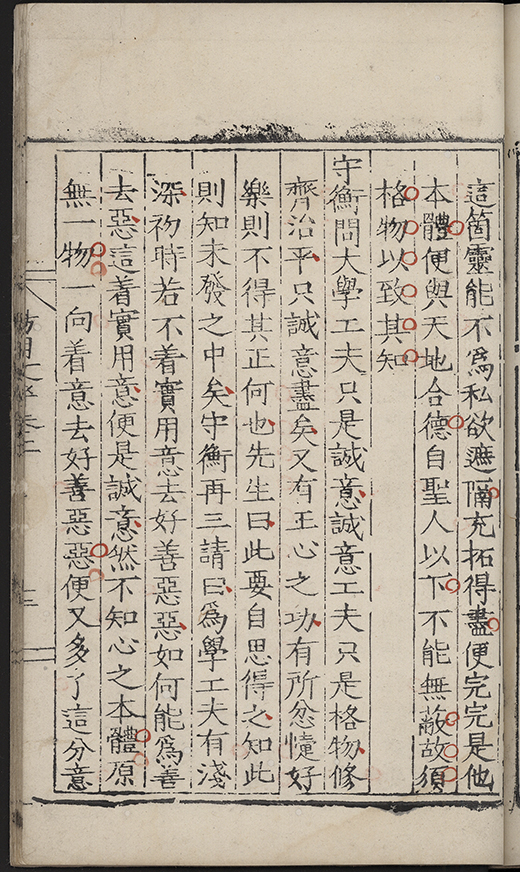 這箇靈能不爲私欲遮隔充拓得盡便完完是他
本體便與天地合德自聖人以下不能無蔽故須
格物以致其知
守衡問大學工夫只是誠意誠意工夫只是格物修
齊治平只誠意盡矣又有正心之功有所忿懥好
樂則不得其正何也先生曰此要自思得之知此
則知未發之中矣守衡再三請曰爲學工夫有淺
深初時若不着實用意去好善惡惡如何能爲善
去惡這着實用意便是誠意然不知心之本體原
無一物一向着意去好善惡惡便又多了這分意
三